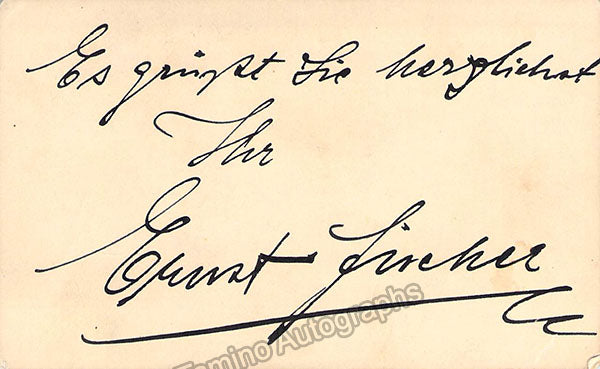 Es grüßt Sie herzlichst
Ihr
Ernst Fischer
Tamino Autographs